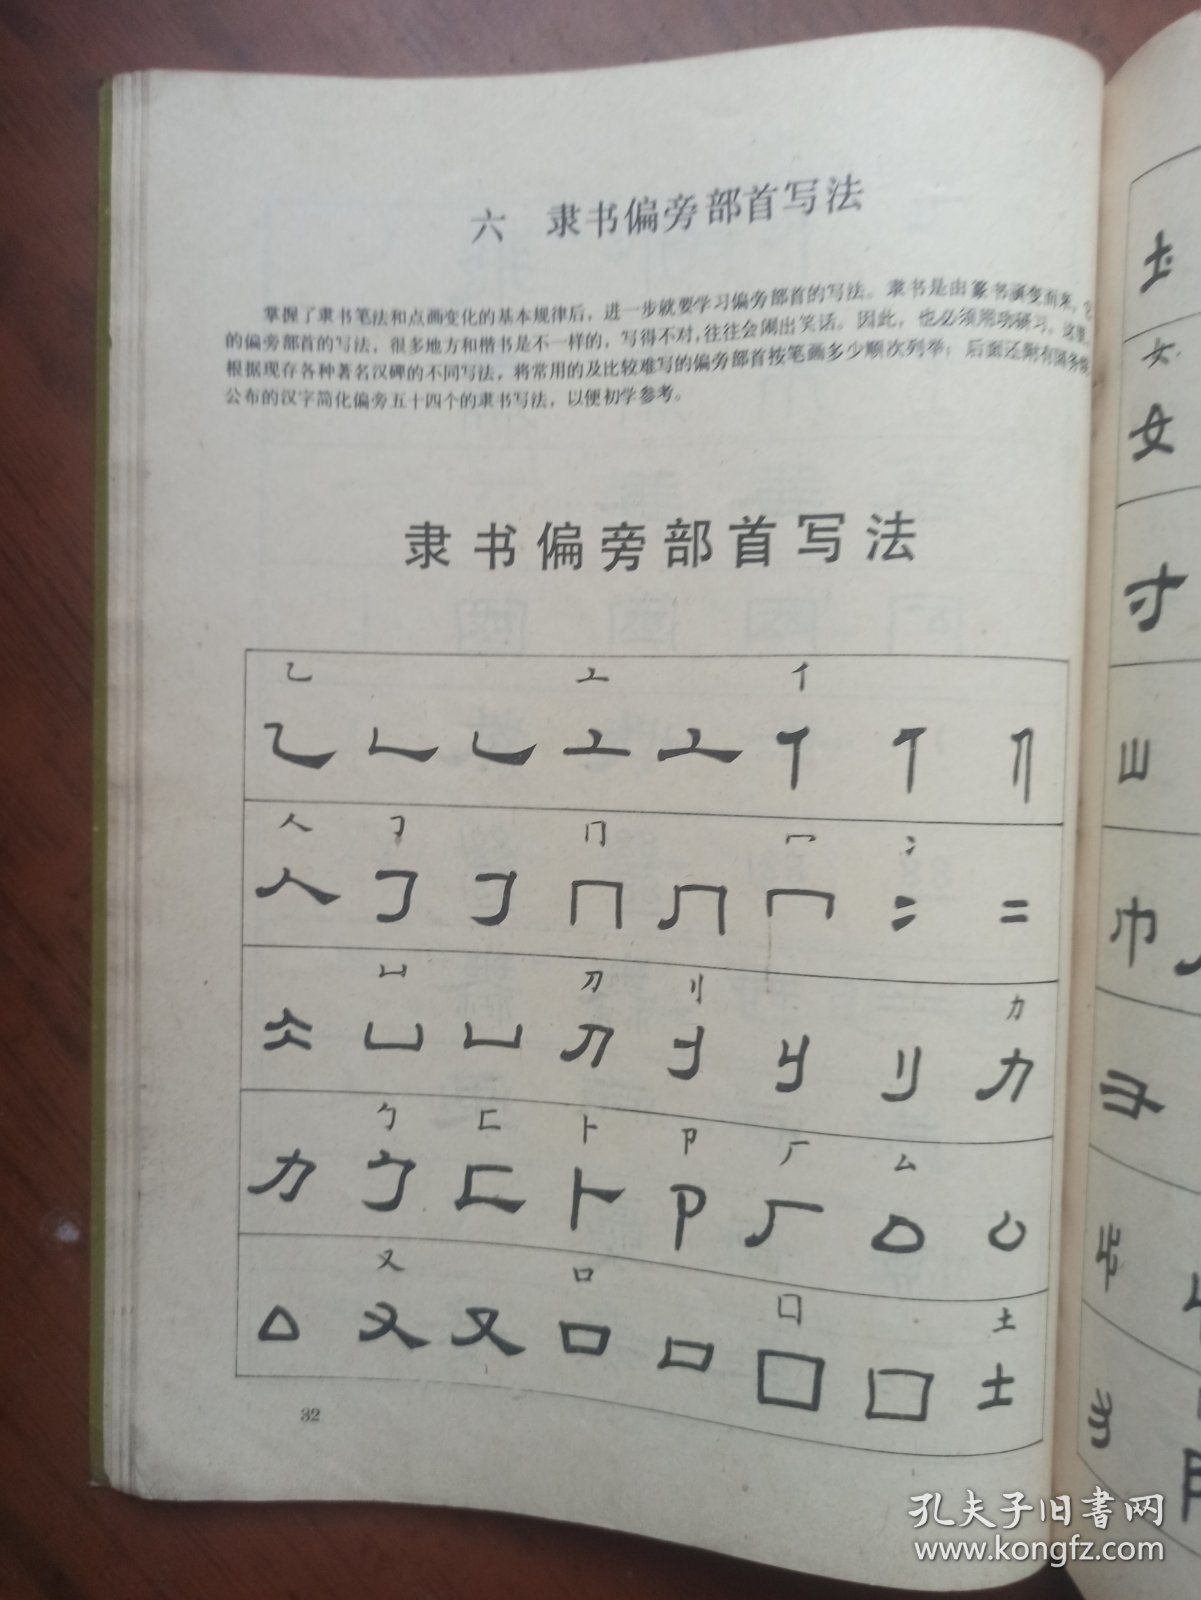 六 隶书偏旁部首写法
掌握了隶书笔法和点画变化的基本规律后，进一步就要学习偏旁部首的写法。隶书是由篆书演变而来，它
的偏旁部首的写法，很多地方和楷书是不一样的，写得不对，往往会闹出笑话。因此，也必须用功研习。这里
根据现存各种著名汉碑的不同写法，将常用的及比较难写的偏旁部首按笔画多少顺次列举；后面还附有国务院
公布的汉字简化偏旁五十四个的隶书写法，以便初学参考。
隶书偏旁部首写法
乙 亠 亻
乙 乚 乚 亠 亠 亻 亻
人 冂 冖 冫
人 冂 冂 冖 冫 冫
凵 刀 刂 力
凵 凵 刀 刂 刂 刂 力
勹 匚 卜 卩 厂 厶
力 勹 匚 卜 卩 厂 厶 厶
又 口 囗 土
厶 又 又 口 口 囗 囗 土
32
女
女
寸
山
巾
孔夫子旧书网
www.kongfz.com